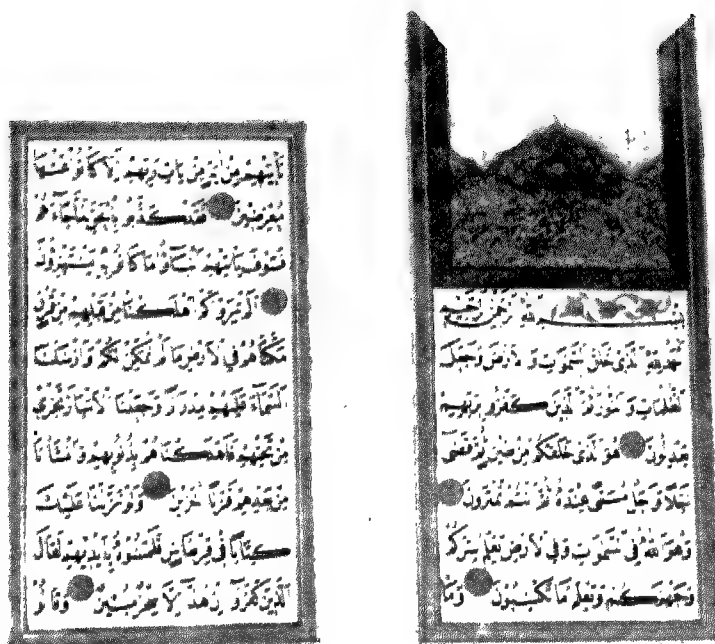 بِسْمِ اللهِ الرَّحْمٰنِ الرَّحِيمِ
اَلْحَمْدُ لِلّٰهِ الَّذِي خَلَقَ السَّمٰوَاتِ وَالْاَرْضَ وَجَعَلَ
الظُّلُمَاتِ وَالنُّورَ ثُمَّ الَّذِينَ كَفَرُوا بِرَبِّهِمْ
يَعْدِلُونَ هُوَ الَّذِي خَلَقَكُمْ مِنْ طِينٍ ثُمَّ قَضٰى
اَجَلًا وَاَجَلٌ مُسَمًّى عِنْدَهُ ثُمَّ اَنْتُمْ تَمْتَرُونَ
وَهُوَ اللهُ فِي السَّمٰوَاتِ وَفِي الْاَرْضِ يَعْلَمُ سِرَّكُمْ
وَجَهْرَكُمْ وَيَعْلَمُ مَا تَكْسِبُونَ وَمَا
تَأْتِيهِمْ مِنْ اٰيَةٍ مِنْ اٰيَاتِ رَبِّهِمْ اِلَّا كَانُوا عَنْهَا
مُعْرِضِينَ فَقَدْ كَذَّبُوا بِالْحَقِّ لَمَّا جَاءَهُمْ
فَسَوْفَ يَأْتِيهِمْ اَنْبَاءُ مَا كَانُوا بِهِ يَسْتَهْزِؤُنَ
اَلَمْ يَرَوْا كَمْ اَهْلَكْنَا مِنْ قَبْلِهِمْ مِنْ قَرْنٍ
مَكَّنَّاهُمْ فِي الْاَرْضِ مَا لَمْ نُمَكِّنْ لَكُمْ وَاَرْسَلْنَا
السَّمَاءَ عَلَيْهِمْ مِدْرَارًا وَجَعَلْنَا الْاَنْهَارَ تَجْرِي
مِنْ تَحْتِهِمْ فَاَهْلَكْنَاهُمْ بِذُنُوبِهِمْ وَاَنْشَأْنَا
مِنْ بَعْدِهِمْ قَرْنًا اٰخَرِينَ وَلَوْ نَزَّلْنَا عَلَيْكَ
كِتَابًا فِي قِرْطَاسٍ فَلَمَسُوهُ بِاَيْدِيهِمْ لَقَالَ
الَّذِينَ كَفَرُوا اِنْ هٰذَا اِلَّا سِحْرٌ مُبِينٌ وَقَالُوا